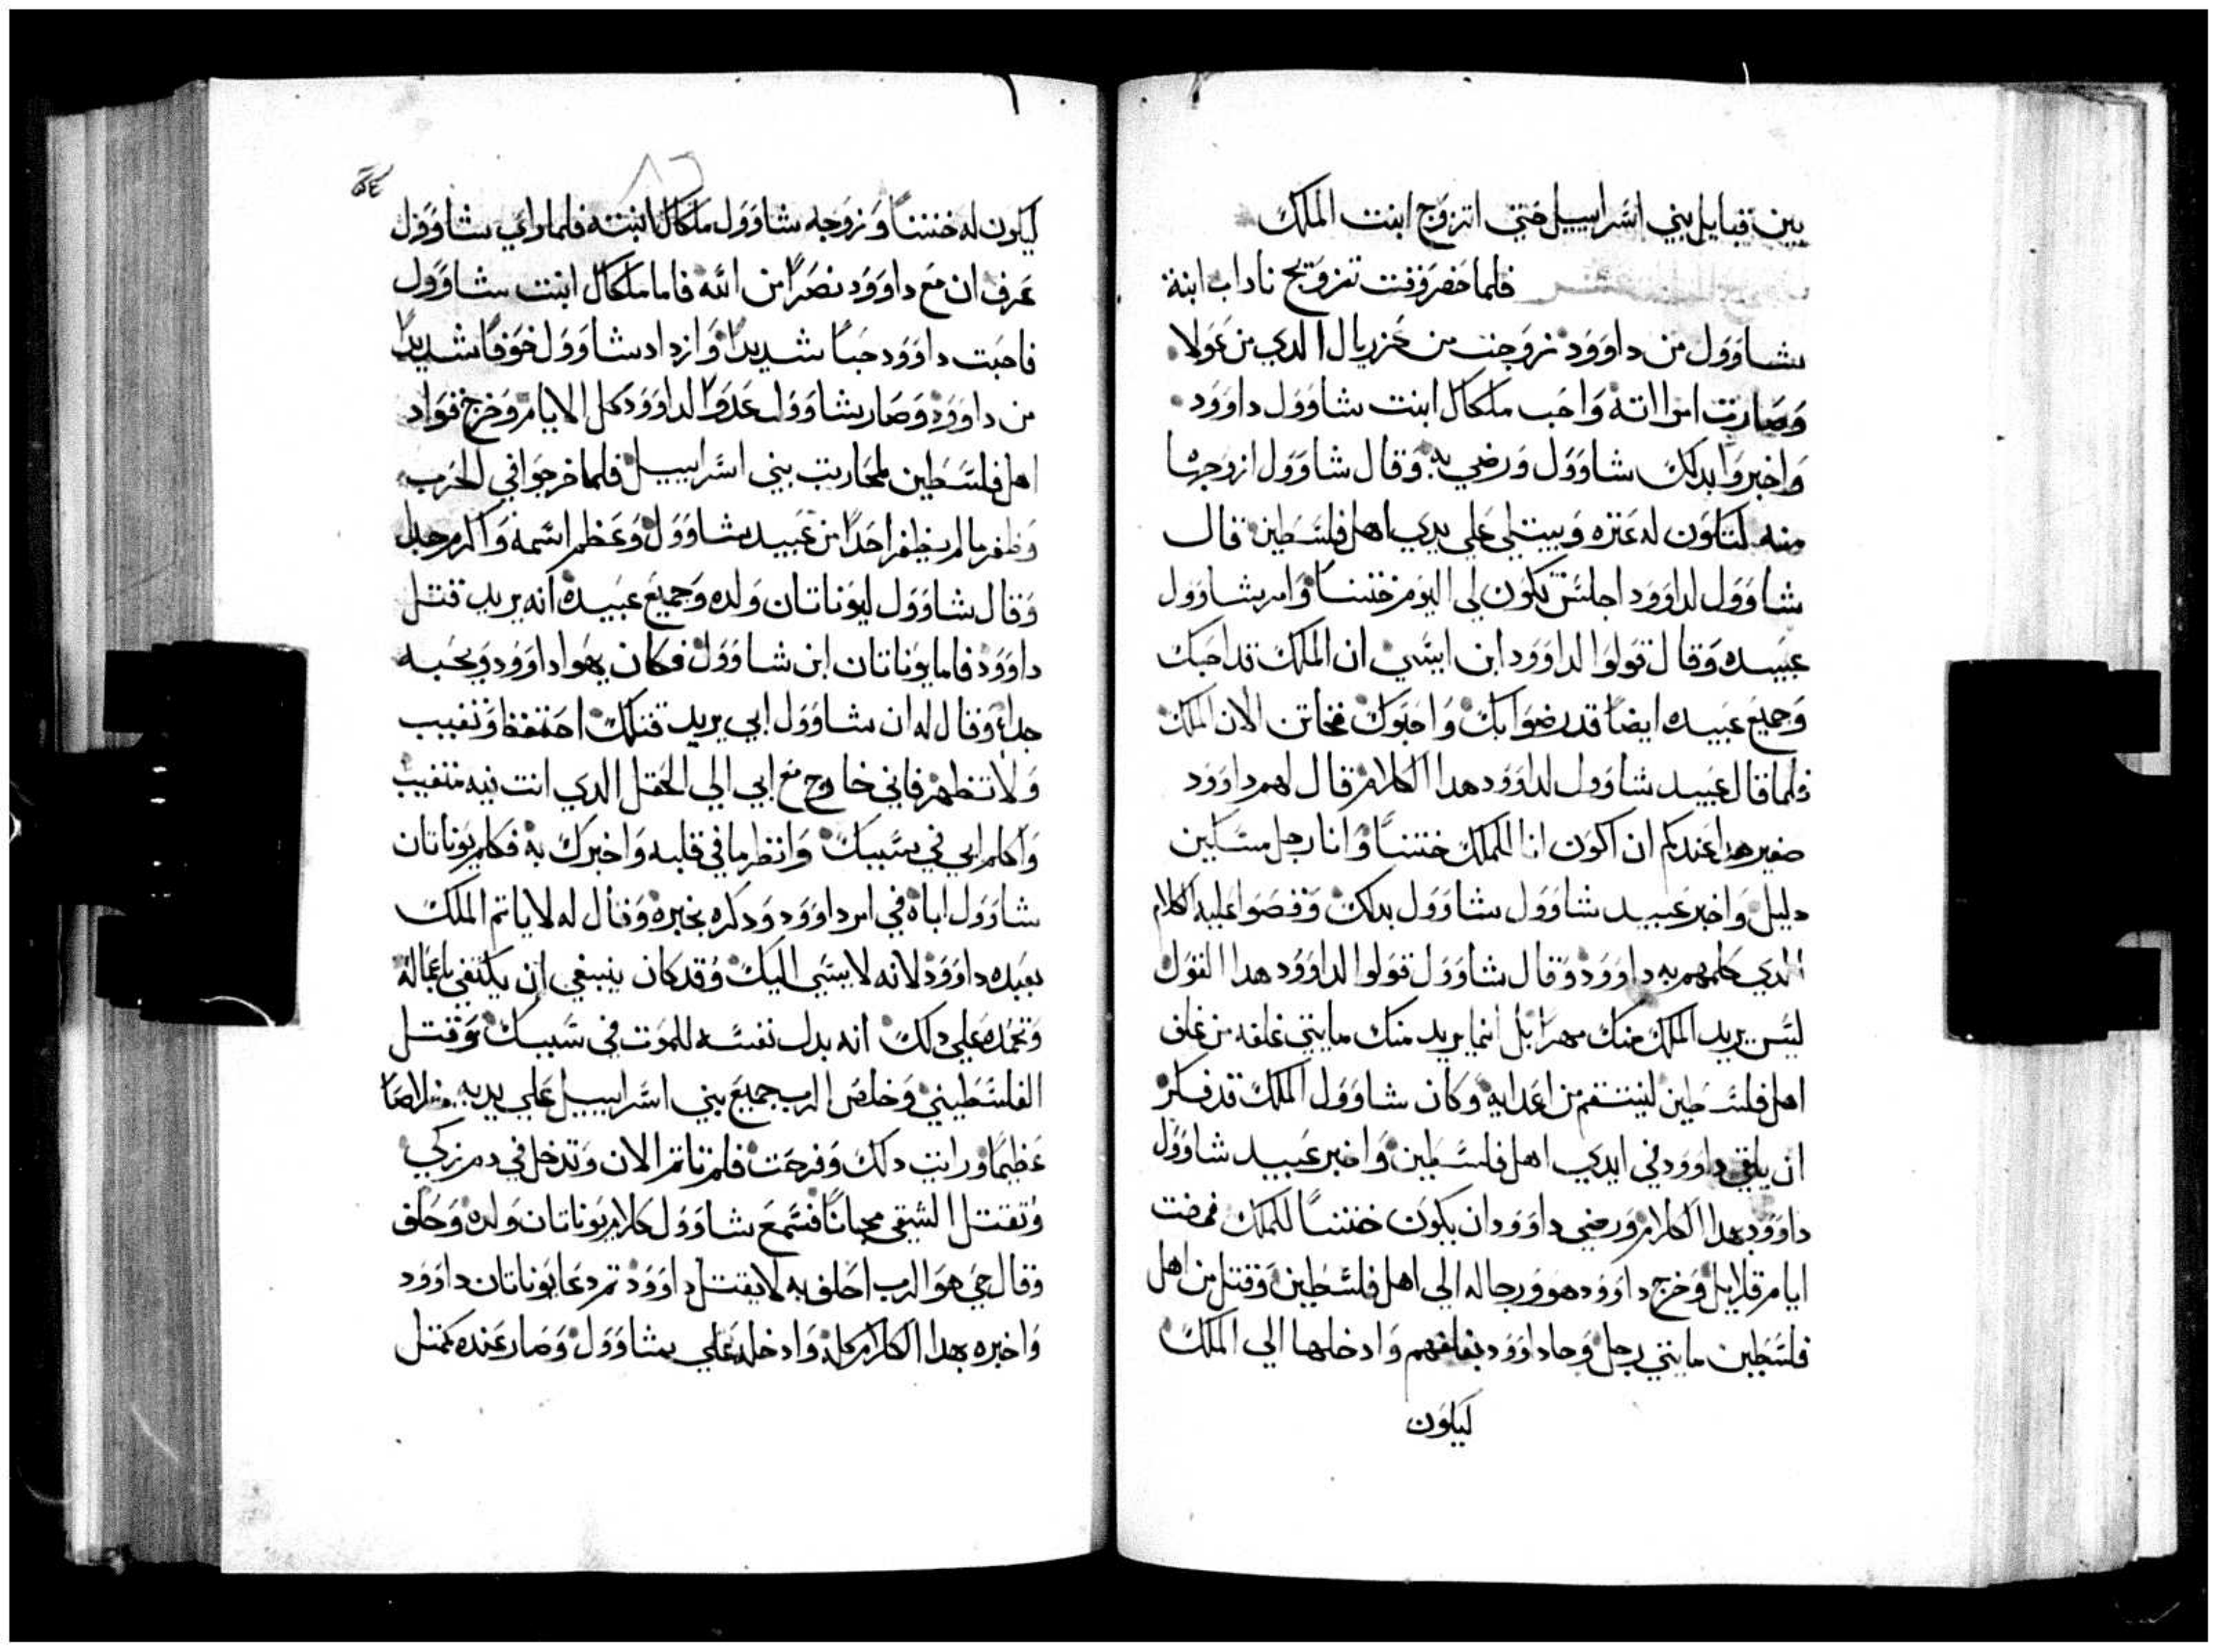 بين قبايل بني اسراييل حتي اتزوج ابنت الملك
فلما حضر وقت تزويج ناداب ابنة
شاوول من داوود زوجت من عزريال الدي من عولا
وصارت امراته واحب ملكال ابنت شاوول داوود
واخبروا بدلك شاوول ورضي به وقال شاوول ازوجها
منه لتكون له عتره ويبتلي علي يدي اهل فلسطين قال
شاوول لداوود اجلس تكون لي اليوم ختنا وامر شاوول
عبيده وقال قولوا لداوود ابن ايسي ان الملك قد احبك
وجميع عبيده ايضا قد رضوا بك واحبوك فخاتن الان الملك
فلما قال عبيد شاوول لداوود هدا الكلام قال لهم داوود
صغير هدا عندكم ان اكون انا للملك ختنا وانا رجل مسكين
دليل واخبر عبيد شاوول شاوول بدلك وقصوا عليه الكلام
الدي كلمهم به داوود وقال شاوول قولوا لداوود هدا القول
ليس يريد الملك منك مهرا بل انما يريد منك مايتي غلفه من غلف
اهل فلسطين لينتقم من اعدايه وكان شاوول الملك قد فكر
ان يلقي داوود في ايدي اهل فلسطين واخبر عبيد شاوول
داوود بهدا الكلام ورضي داوود ان يكون ختنا للملك فمضت
ايام قلايل وخرج داوود هو ورجاله الي اهل فلسطين وقتل من اهل
فلسطين مايتي رجل وجا داوود بغلفهم وادخلها الي الملك
ليكون
ليكون له ختنا وزوجه شاوول ملكال ابنته فلما راي شاوول
عرف ان مع داوود نصرا من الله فاما ملكال ابنت شاوول
فاحبت داوود حبا شديدا وازداد شاوول خوفا شديدا
من داوود وصار شاوول عدوا لداوود كل الايام وخرج قواد
اهل فلسطين لمحاربت بني اسراييل فلما خرجوا في الحرب
وظفر ما لم يظفر احدا من عبيد شاوول وعظم اسمه واكرم جدا
وقال شاوول ليوناتان ولده وجميع عبيده انه يريد قتل
داوود فاما يوناتان ابن شاوول فكان يهوا داوود ويحبه
جدا وقال له ان شاوول ابي يريد قتلك احتفظ وتغيب
ولا تظهر فاني خارج مع ابي الي الحقل الدي انت فيه متغيب
واكلم ابي في سببك وانظر ما في قلبه واخبرك به فكلم يوناتان
شاوول اباه في امر داوود ودكره بخبره وقال له لا ياثم الملك
بعبده داوود لانه لا يسي اليك وقد كان ينبغي ان يكتفي باعماله
وتحمده علي دلك انه بدل نفسه للموت في سببك وقتل
الفلسطيني وخلص الرب جميع بني اسراييل علي يديه خلاصا
عظيما ورايت دلك وفرحت فلم تاثم الان وتدخل في دم زكي
وتقتل الشقي مجانا فسمع شاوول كلام يوناتان ولده وحلف
وقال حي هو الرب احلف به لا يقتل داوود ثم دعا يوناتان داوود
واخبره بهدا الكلام كله وادخله علي شاوول وصار عنده كمثل